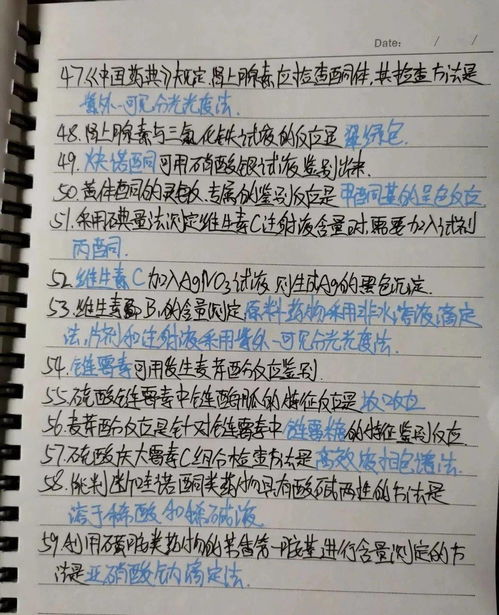 Date: / /
47《中国药典》规定,肾上腺素应检查酮体,其检查方法是
紫外-可见分光光度法.
48.肾上腺素与三氯化铁试液的反应是翠绿色
49.炔诺酮可用硝酸银试液鉴别出来.
50.黄体酮的灵敏、专属的鉴别反应是甲酮基的呈色反应
51.采用碘量法测定维生素C注射液含量时,需要加入试剂
丙酮.
52.维生素C加入AgNO3试液则生成Ag的黑色沉淀.
53.维生素B1的含量测定原料药物采用非水溶液滴定
法,片剂和注射液采用紫外-可见分光光度法.
54.链霉素可用发生麦芽酚反应鉴别.
55.硫酸链霉素中链霉胍的特征反应是坂口反应
56.麦芽酚反应是针对链霉素中链霉糖的特征鉴别反应.
57.硫酸庆大霉素C组分检查方法是高效液相色谱法.
58.批判喹诺酮类药物具有酸碱两性的方法是
溶于稀酸和稀碱液.
59.利用磺胺类药物的芳香第一胺基进行含量测定的方
法是亚硝酸钠滴定法.